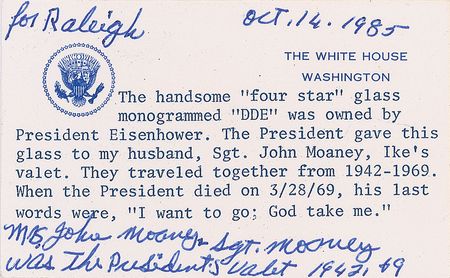 for Raleigh
Oct. 14. 1985
THE WHITE HOUSE
WASHINGTON
The handsome "four star" glass
monogrammed "DDE" was owned by
President Eisenhower. The President gave this
glass to my husband, Sgt. John Moaney, Ike's
valet. They traveled together from 1942-1969.
When the President died on 3/28/69, his last
words were, "I want to go; God take me."
Mrs. John Moaney - Sgt. Moaney
was The President's Valet 1942/69